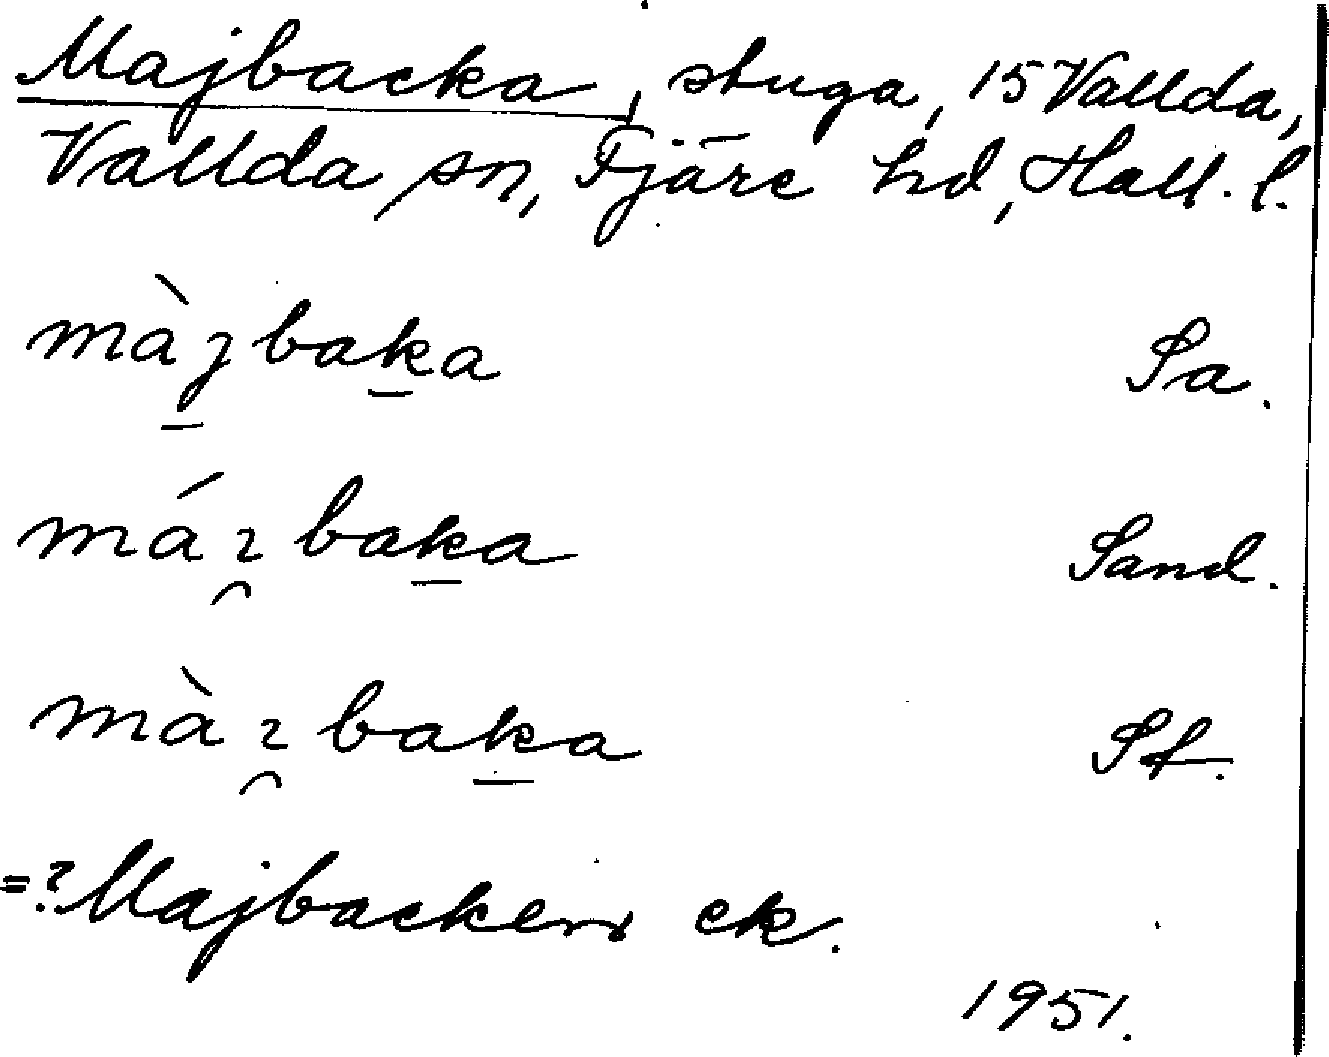 Majbacka, stuga, 15 Vallda,
Vallda sn, Fjäre hd, Hall. l.
màjbaka Sa.
má baka Sand.
mà baka St.
=? Majbacken ek.
1951.